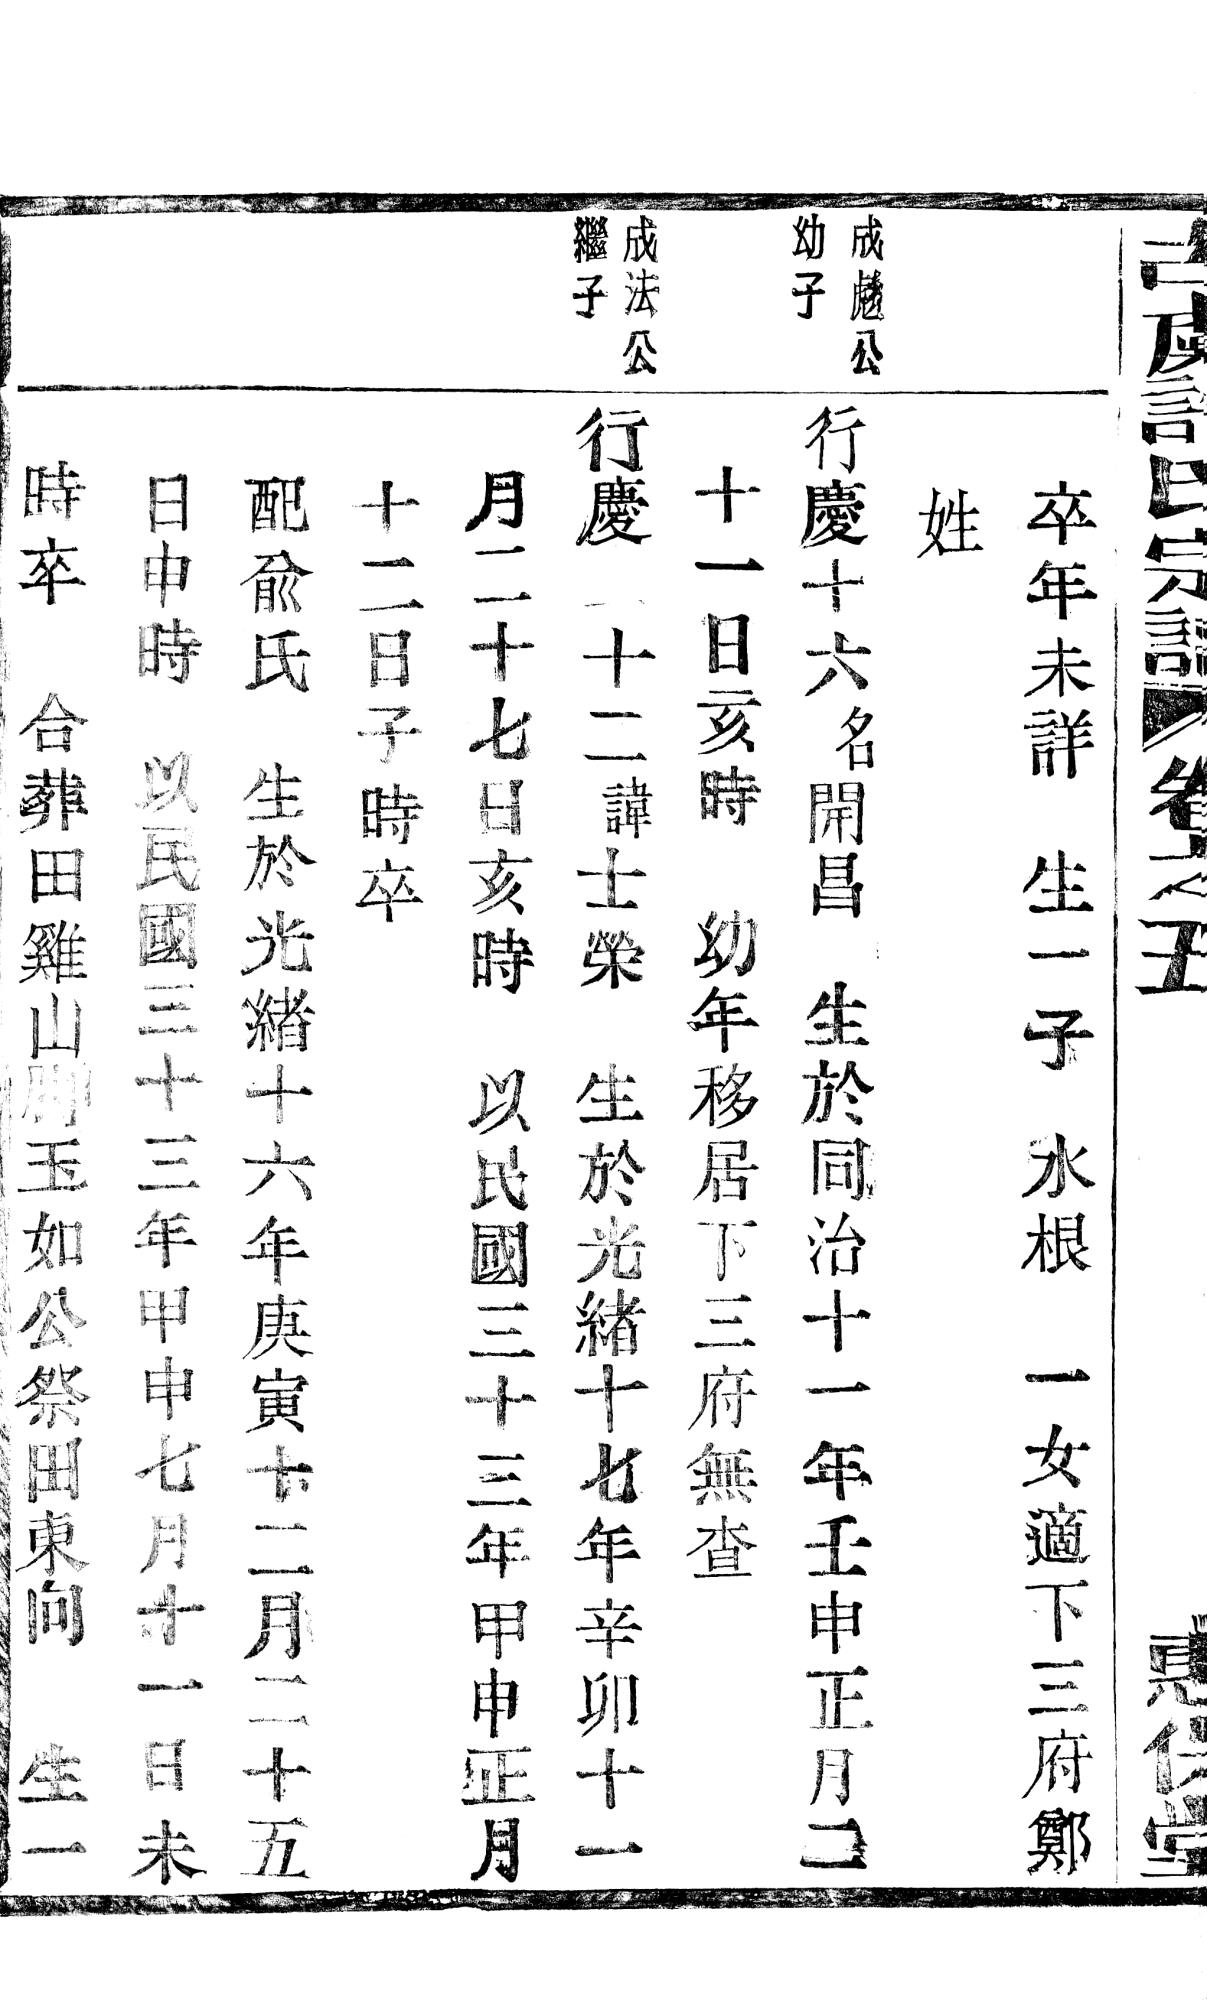 古虞許氏宗譜 卷之五
卒年未詳 生一子 水根 一女適下三府鄭
姓
成彪公
幼子
行慶十六名開昌 生於同治十一年壬申正月二
十一日亥時 幼年移居下三府無查
成法公
繼子
行慶 十二諱士榮 生於光緒十七年辛卯十一
月二十七日亥時 以民國三十三年甲申正月
十二日子時卒
配俞氏 生於光緒十六年庚寅十二月二十五
日申時 以民國三十三年甲申七月十一日未
時卒 合葬田雞山脚玉如公祭田東向 生一